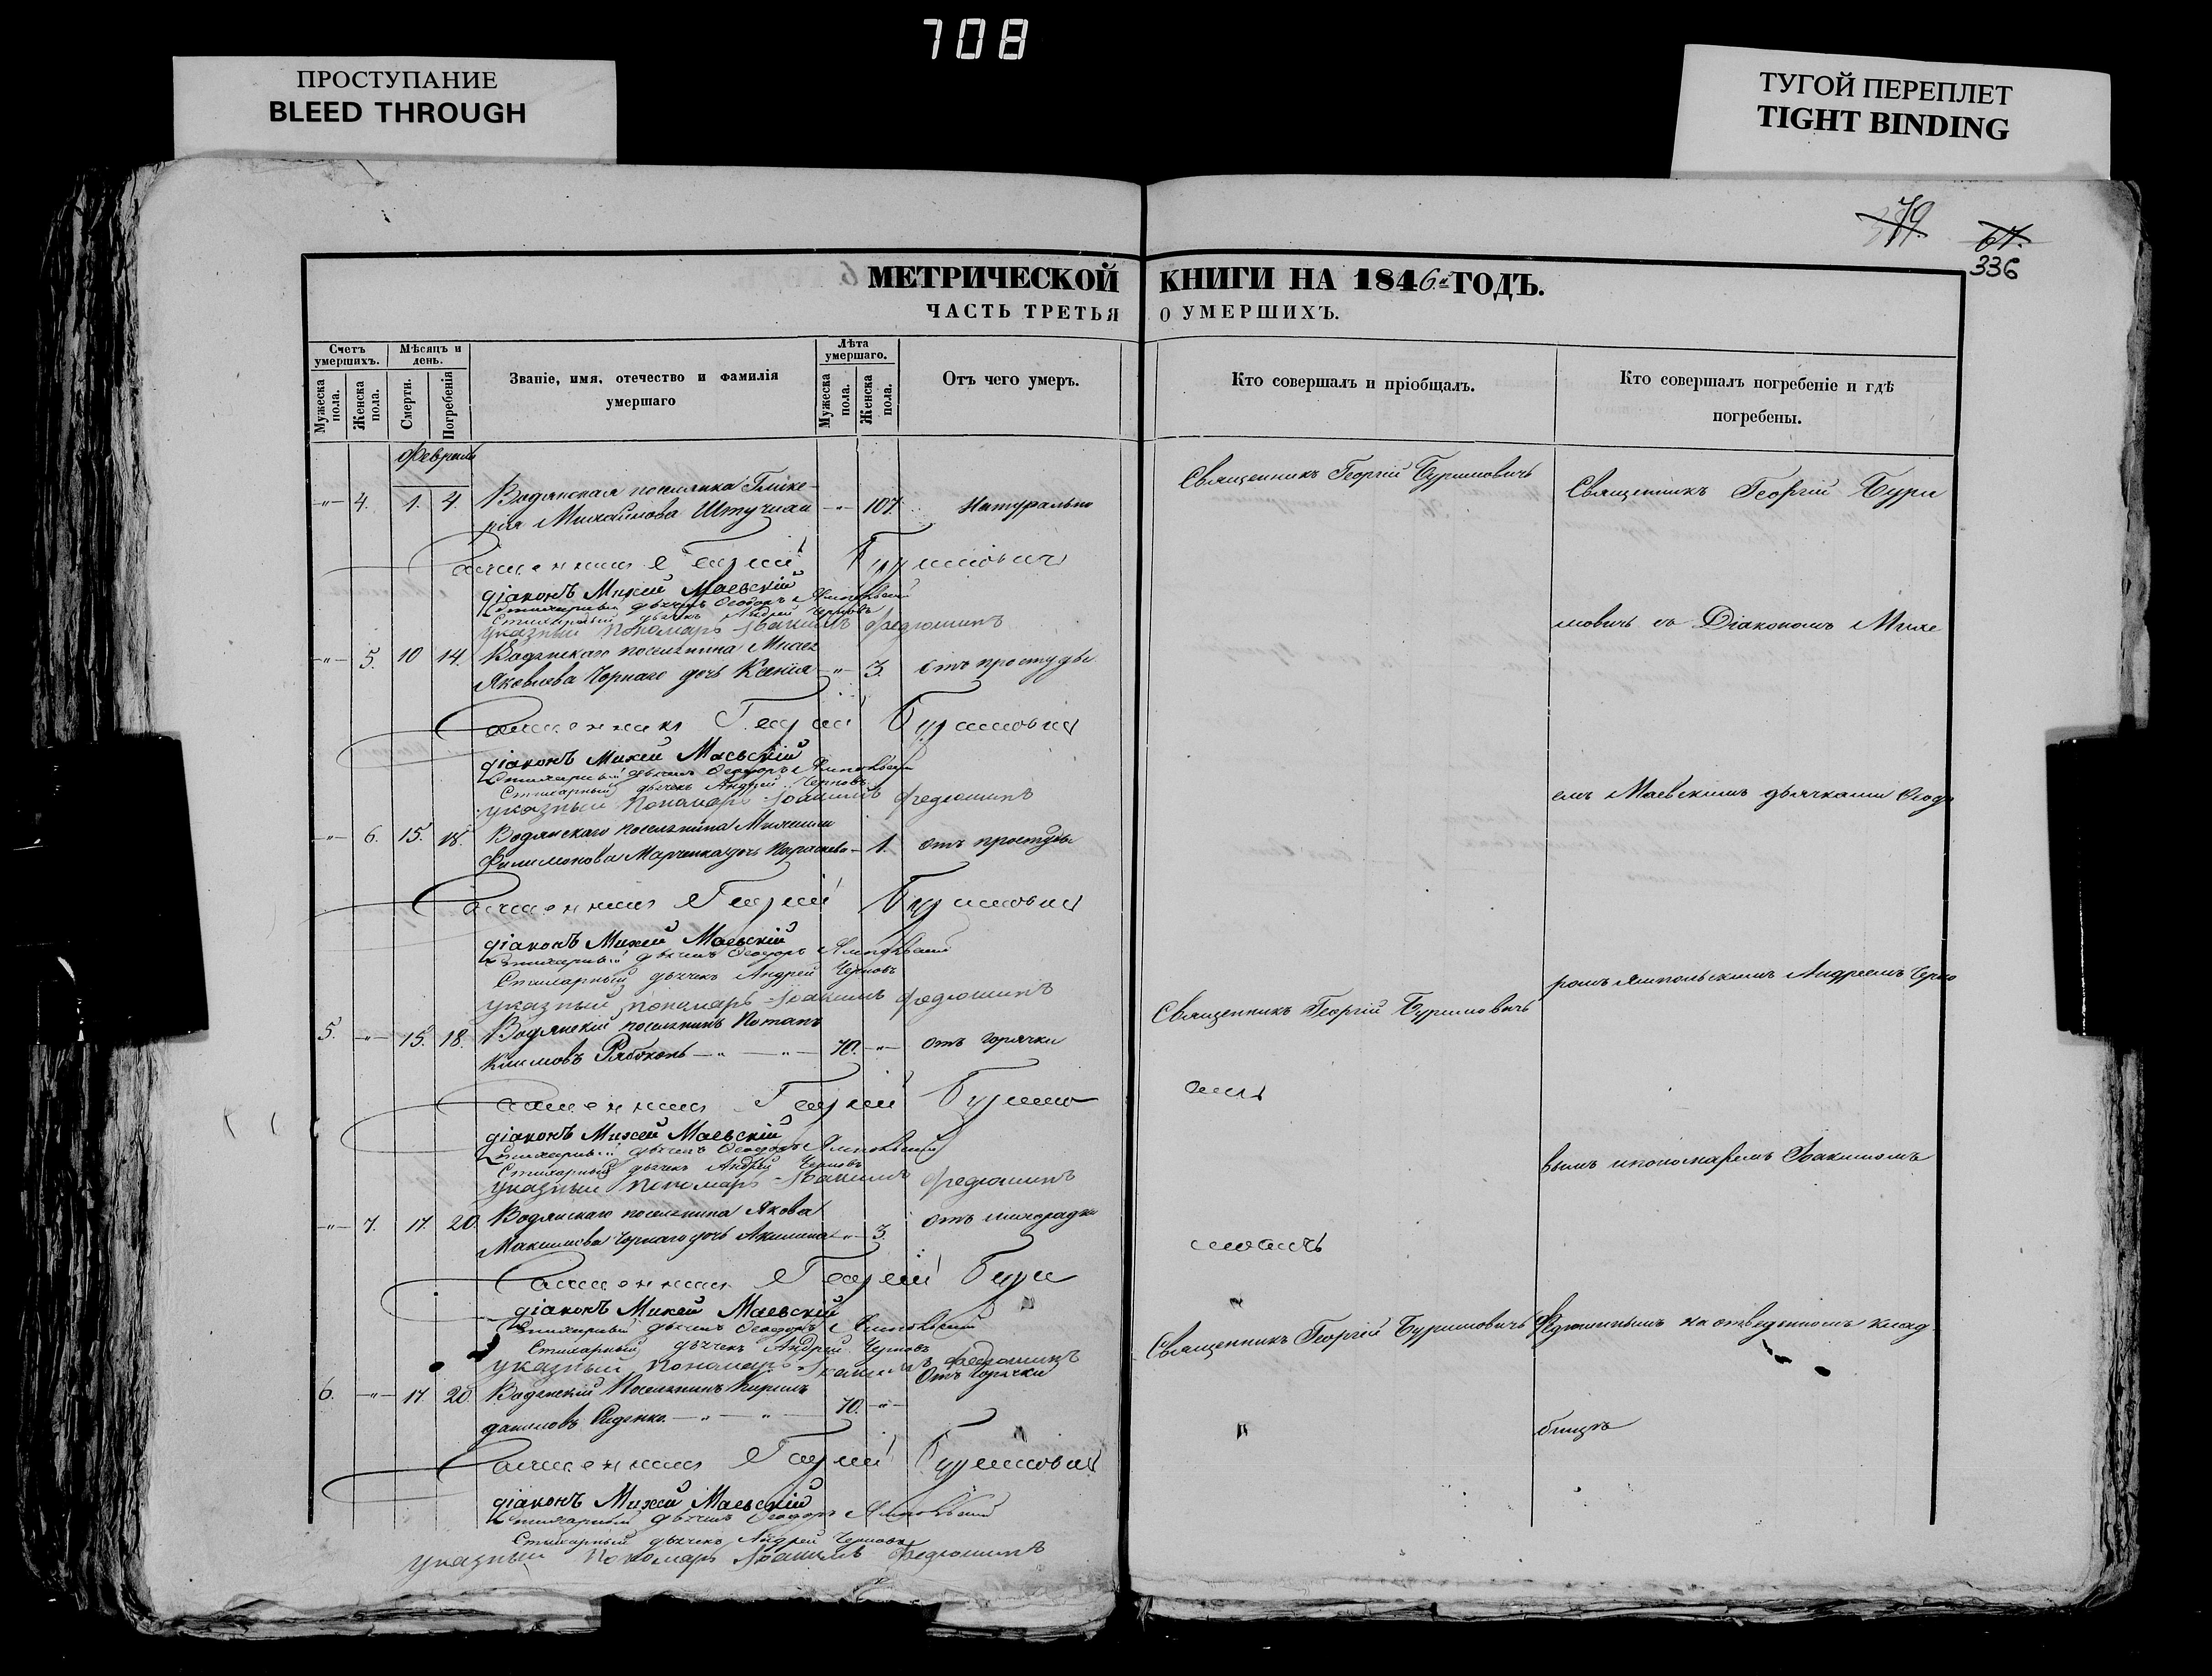 708
ПРОСТУПАНИЕ
BLEED THROUGH
ТУГОЙ ПЕРЕПЛЕТ
TIGHT BINDING
79.
67.
336
МЕТРИЧЕСКОЙ КНИГИ НА 1846й ГОДЪ.
ЧАСТЬ ТРЕТЬЯ О УМЕРШИХЪ.
Счетъ умершихъ.
Мѣсяцъ и день.
Званіе, имя, отечество и фамилія умершаго
Лѣта умершаго.
Отъ чего умеръ.
Кто совершалъ и пріобщалъ.
Кто совершалъ погребеніе и гдѣ погребены.
Мужеска пола.
Женска пола.
Смерти.
Погребенія
Мужеска пола.
Женска пола.
Февраль
-"- 4. 1. 4. Водянская поселянка Глике-
рия Михайлова -"- 107. Натурально
Священникъ Георгій Буримовичь
Священникъ Георгій Бури
Священникъ Георгій Буримовичъ
діаконъ Михей Маевскій
Стихарный дьячекъ Ѳеодоръ Ямпольскій
Стихарный дьячекъ Андрей Черновъ
Указный Пономарь Іоакимъ Федюшинъ
мовичь съ Діакономъ Михе
-"- 5. 10 14. Водянскаго поселянина
Яковлева Чорнаго дочь Ксенія -"- 3. отъ простуды
Священникъ Георгій Буримовичъ
діаконъ Михей Маевскій
Стихарный дьячекъ Ѳеодоръ Ямпольскій
Стихарный дьячекъ Андрей Черновъ
Указный Пономарь Іоакимъ Федюшинъ
емъ Маевскимъ дьячками Ѳеодо
-"- 6. 15. 18. Водянскаго поселянина
Филимонова Марченка дочь Параскева - 1. отъ простуды
Священникъ Георгій Буримовичъ
діаконъ Михей Маевскій
Стихарный дьячекъ Ѳеодоръ Ямпольскій
Стихарный дьячекъ Андрей Черновъ
Указный Пономарь Іоакимъ Федюшинъ
ромъ Ямпольскимъ Андреемъ Черно
5. -"- 15. 18. Водянскій поселянинъ Потапъ
Климовъ Рябоконь -"- -"- 70. -"- отъ горячки
Священникъ Георгій Буримовичь
Священникъ Георгій Буримо
вичъ
діаконъ Михей Маевскій
Стихарный дьячекъ Ѳеодоръ Ямпольскій
Стихарный дьячекъ Андрей Черновъ
Указный Пономарь Іоакимъ Федюшинъ
вымъ и пономаремъ Іоакимомъ
-"- 7. 17. 20. Водянскаго поселянина Якова
Чорнаго дочь Акилина -"- 3. отъ лихорадки
Священникъ Георгій Бури
мовичъ
діаконъ Михей Маевскій
Стихарный дьячекъ Ѳеодоръ Ямпольскій
Стихарный дьячекъ Андрей Черновъ
Указный Пономарь Іоакимъ Федюшинъ
Священникъ Георгій Буримовичь
Федюшинымъ на отведенномъ клад
6. -"- 17. 20. Водянскій Поселянинъ Кирилъ
Даниловъ -"- -"- 70. -"- Отъ Горячки
бищѣ
Священникъ Георгій Буримовичъ
діаконъ Михей Маевскій
Стихарный дьячекъ Ѳеодоръ Ямпольскій
Стихарный дьячекъ Андрей Черновъ
Указный Пономарь Іоакимъ Федюшинъ